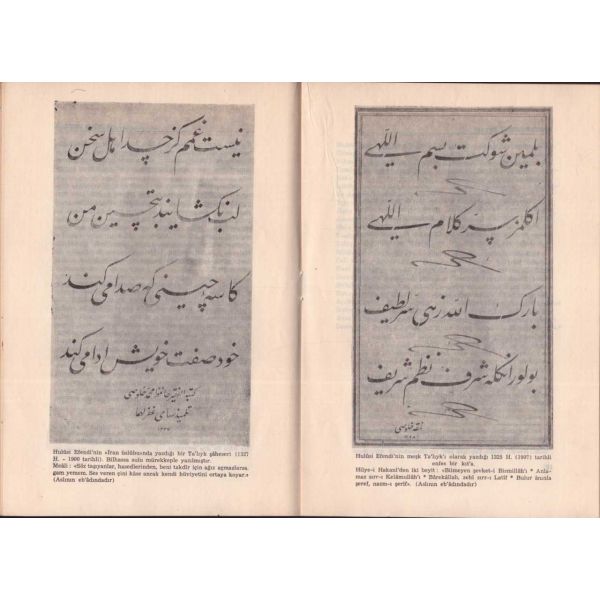 نیست غمم گر چه اهل سخن
لب نگشایند بتحسین من
کاسه چینی که صدا می کند
خود صفت خویش ادا می کند
کتبه الفقیر خلوصی
تلمیذ سامی غفر لهما
۱۳۲۷
Hulûsi Efendi'nin «İran üslûbu»nda yazdığı bir Ta'lıyk şâheseri (1327
H. - 1909 tarihli). Bilhassa sulu mürekkeple yazılmıştır.
Meâli : «Söz taşıyanlar, hasedlerinden, beni takdir için ağız açmazlarsa,
gam yemem. Ses veren çini kâse ancak kendi hüviyetini ortaya koyar.»
(Aslının eb'âdındadır)
بلمین شوکت بسم اللهی
اکلمز سر کلام اللهی
بارک الله زهی سر لطیف
بولور انکله شرف نظم شریف
نمقه خلوصی
Hulûsi Efendi'nin meşk Ta'lıyk'ı olarak yazdığı 1325 H. (1907) tarihli
enfes bir kıt'a.
Hilye-i Hakanî'den iki beyit : «Bilmeyen şevket-i Bismillâh'ı * Anla-
maz sırr-ı Kelâmullâh'ı * Bârekâllah, zehî sırr-ı Latîf * Bulur ânınla
şeref, nazm-ı şerîf». (Aslının eb'âdındadır)